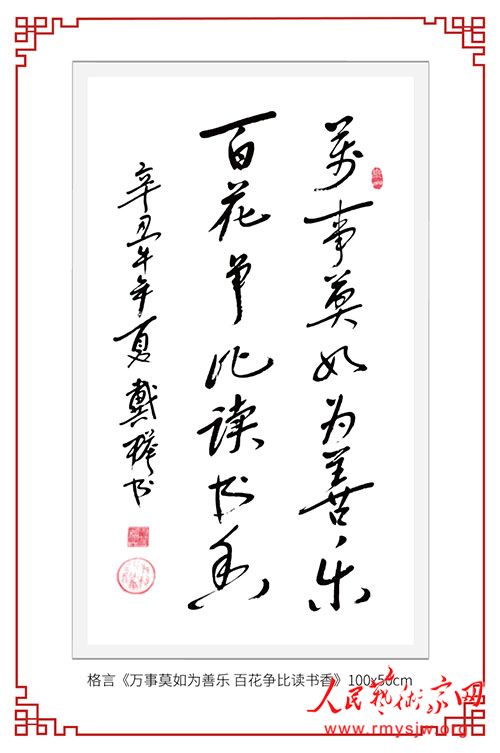 萬事莫如为善乐
百花争比读书香
辛丑牛年夏戴 书
格言《万事莫如为善乐 百花争比读书香》100x50cm
人民藝術家网
www.rmysjw.org